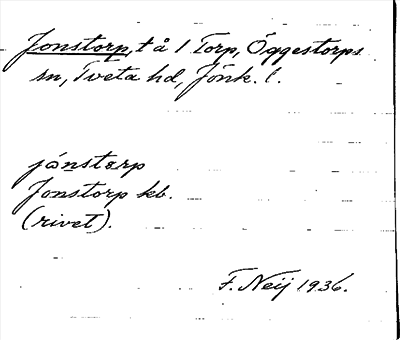 Jonstorp, t å 1 Torp, Öggestorps
sn, Tveta hd, Jönk. l.
jónstɑrp
Jonstorp kb.
(rivet).
F. Neij 1936.